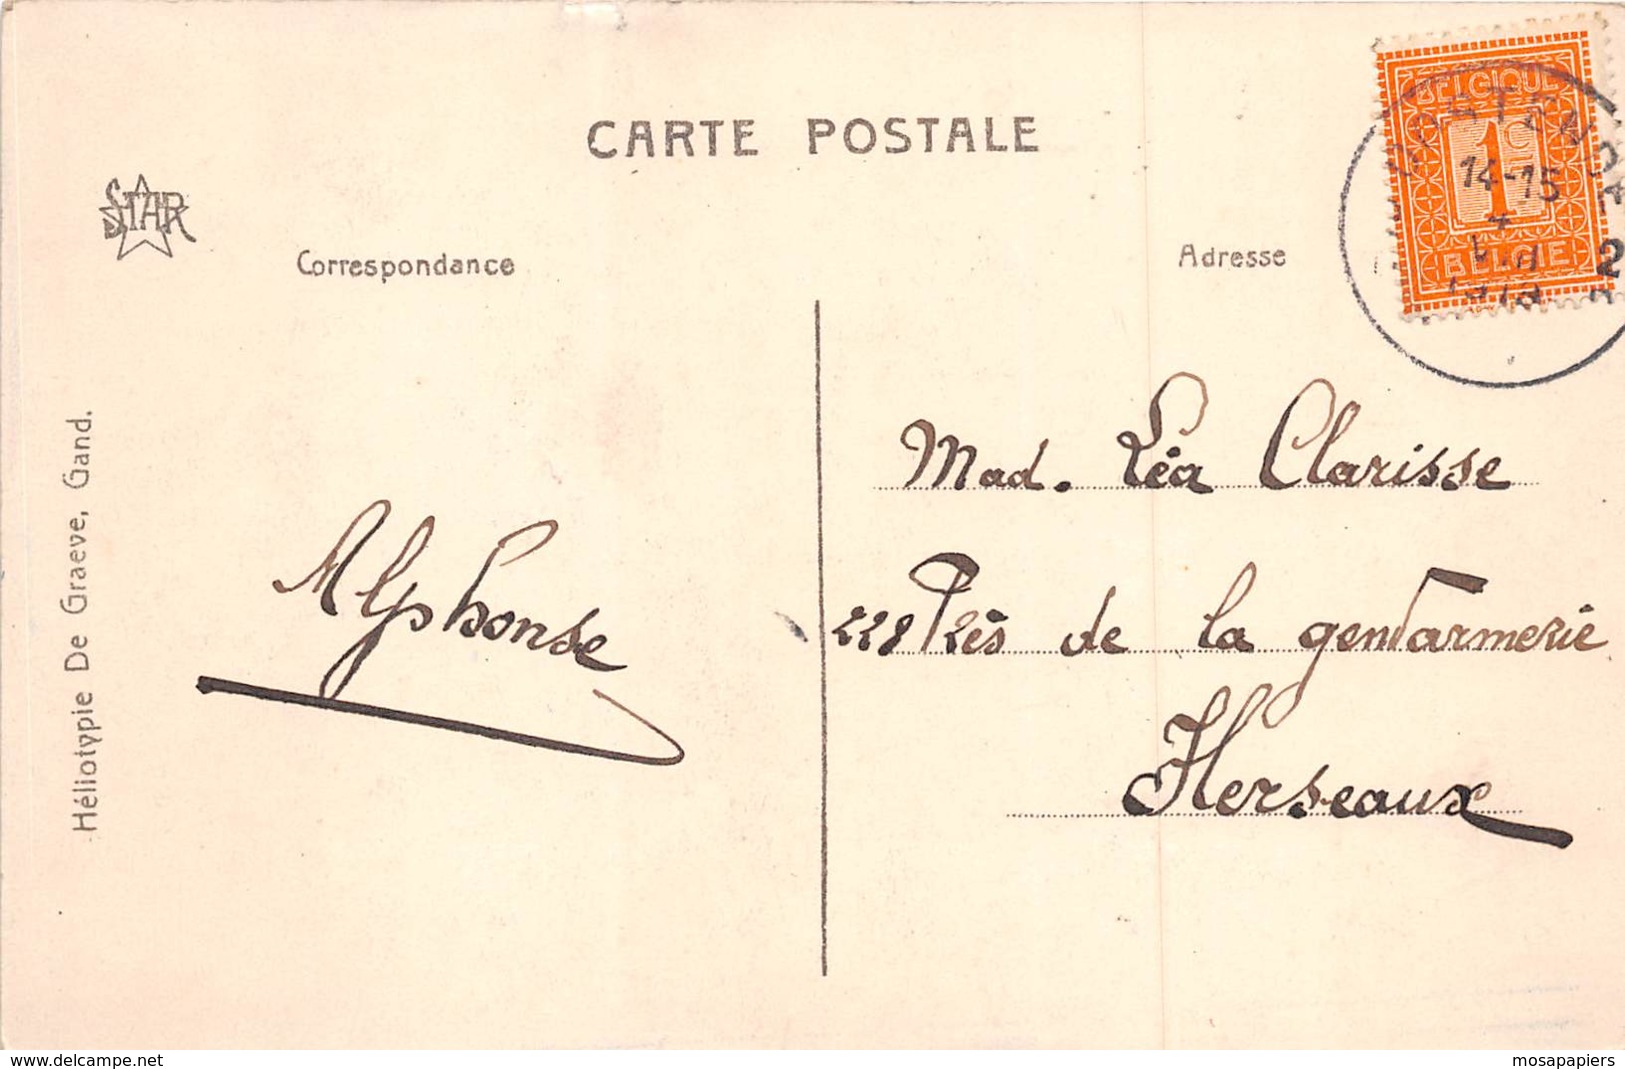 CARTE POSTALE
STAR
Correspondance
Adresse
BELGIQUE
1 CT
BELGIE
14-15
2
Mad. Léa Clarisse
228 Près de la gendarmerie
Herseaux
Alphonse
Héliotypie De Graeve, Gand.
delcampe.net
mosapapiers